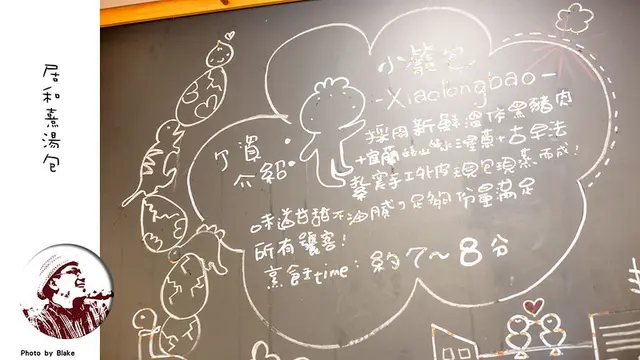 居和熹湯包
小籠包
-Xiaolongbao-
資
介紹:
採用新鮮溫体黑豬肉
+宜蘭 蔥+古早法
手工外皮現包現蒸而成!
味道甘甜不油膩,足夠份量滿足
所有饕客!
烹飪time:約7~8分
Photo by Blake